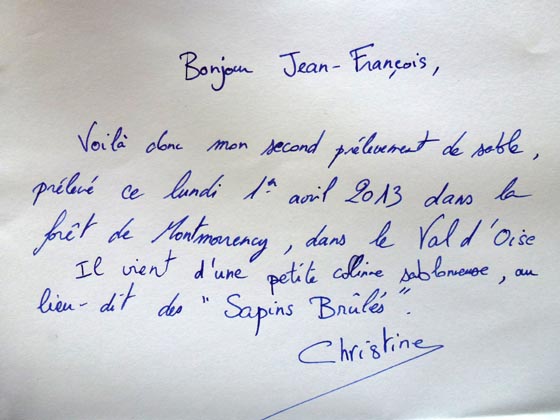 Bonjour Jean-François,
Voilà donc mon second prélèvement de sable,
prélevé ce lundi 1er avril 2013 dans la
forêt de Montmorency, dans le Val d'Oise
Il vient d'une petite colline sablonneuse, au
lieu-dit des "Sapins Brûlés".
Christine